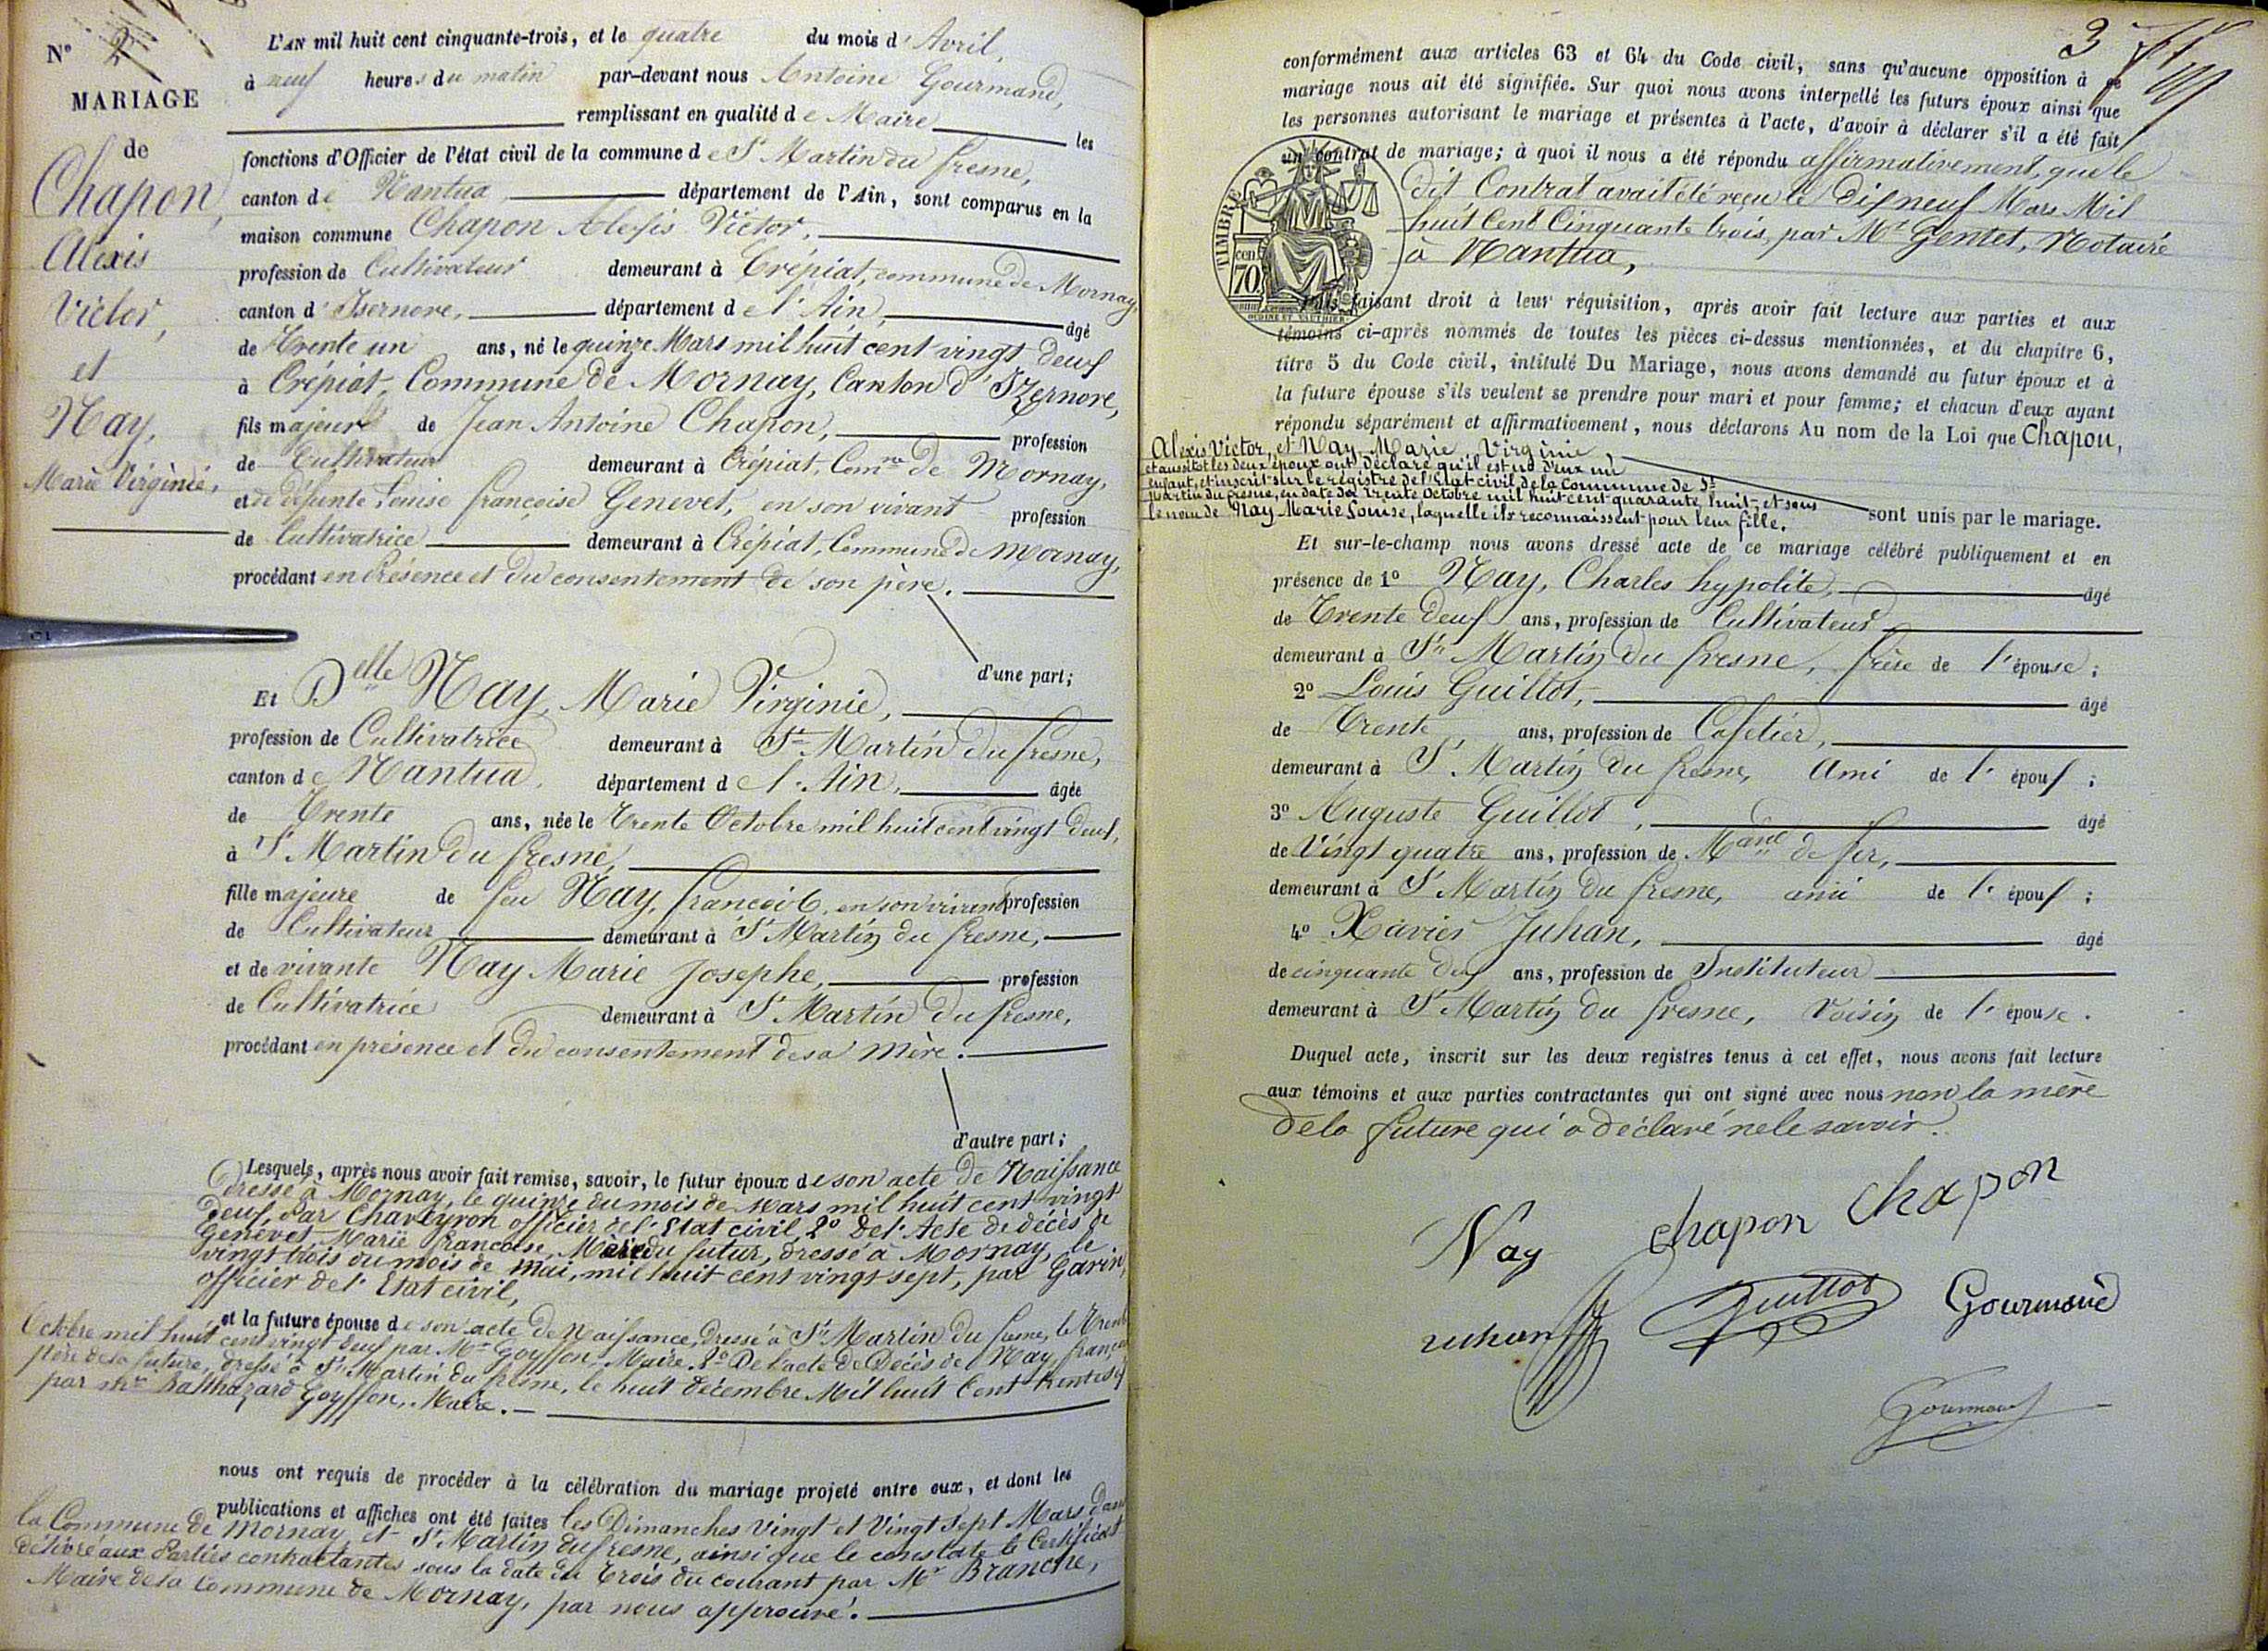 N° 2
MARIAGE
de
Chapon,
Alexis
Victor,
et
Nay,
Marie Virginie,
L'AN mil huit cent cinquante-trois, et le quatre du mois d'Avril,
à neuf heures du matin par-devant nous Antoine Gourmand,
remplissant en qualité de Maire les
fonctions d'Officier de l'état civil de la commune de St Martin du fresne,
canton de Nantua département de l'Ain, sont comparus en la
maison commune Chapon Alexis Victor,
profession de Cultivateur demeurant à Crépiat, commune de Mornay,
canton d'Isernore, département de l'Ain, âgé
de Trente un ans, né le quinze Mars mil huit cent vingt deux
à Crépiat, Commune de Mornay, Canton d'Izernore,
fils majeur de Jean Antoine Chapon, profession
de Cultivateur demeurant à Crépiat, Comne de Mornay,
et de défunte Louise françoise Genevet, en son vivant profession
de Cultivatrice demeurant à Crépiat, Commune de Mornay,
procédant en présence et du consentement de son père.
d'une part;
Et Delle Nay, Marie Virginie,
profession de Cultivatrice demeurant à St Martin du fresne,
canton de Nantua, département de l'Ain, âgée
de Trente ans, née le Trente Octobre mil huit cent vingt deux,
à St Martin du fresne,
fille majeure de feu Nay, françois, en son vivant profession
de Cultivateur demeurant à St Martin du fresne,
et de vivante Nay Marie Josephe, profession
de Cultivatrice demeurant à St Martin du fresne,
procédant en présence et du consentement de sa mère.
d'autre part;
Lesquels, après nous avoir fait remise, savoir, le futur époux de son acte de Naissance
dressé à Mornay, le quinze du mois de Mars mil huit cent vingt
deux, par Chaveyron officier de l'Etat civil, 2° De l'Acte de décès de
Genevet, Marie françoise, Mère du futur, dressé à Mornay, le
vingt trois du mois de Mai, mil huit cent vingt sept, par Gavin,
officier de l'Etat civil,
et la future épouse de son acte de Naissance, dressé à St Martin du fresne, le Trente
Octobre mil huit cent vingt deux par Mr Goyffon, Maire. 2° De l'acte de Décès de Nay, françois
père de la future, dressé à St Martin du fresne, le huit décembre Mil huit Cent trente six
par Mr Balthazard Goyffon, Maire.
nous ont requis de procéder à la célébration du mariage projeté entre eux, et dont les
publications et affiches ont été faites les Dimanches Vingt et Vingt Sept Mars dans
la Commune de Mornay et St Martin du fresne, ainsi que le constate le Certificat
délivré aux Parties contractantes sous la date du Trois du courant par Mr Branche,
Maire de la Commune de Mornay, par nous approuvé.
3
conformément aux articles 63 et 64 du Code civil, sans qu'aucune opposition à ce
mariage nous ait été signifiée. Sur quoi nous avons interpellé les futurs époux ainsi que
les personnes autorisant le mariage et présentes à l'acte, d'avoir à déclarer s'il a été fait
un contrat de mariage; à quoi il nous a été répondu affirmativement, que le
dit Contrat avait été reçu le Dixneuf Mars Mil
huit Cent Cinquante trois, par Mr Gentet, Notaire
à Nantua,
TIMBRE
cen. 70.
OUDINE ET VAUTHIER
Puis, faisant droit à leur réquisition, après avoir fait lecture aux parties et aux
témoins ci-après nommés de toutes les pièces ci-dessus mentionnées, et du chapitre 6,
titre 5 du Code civil, intitulé Du Mariage, nous avons demandé au futur époux et à
la future épouse s'ils veulent se prendre pour mari et pour femme; et chacun d'eux ayant
répondu séparément et affirmativement, nous déclarons Au nom de la Loi que Chapon,
Alexis Victor, et Nay Marie Virginie,
et aussitôt les deux époux ont déclaré qu'il est né d'eux un
enfant, et inscrit sur le registre de l'Etat civil de la Commune de St
Martin du fresne, en date du trente Octobre mil huit cent quarante huit, et sous
le nom de Nay Marie Louise, laquelle ils reconnaissent pour leur fille.
sont unis par le mariage.
Et sur-le-champ nous avons dressé acte de ce mariage célébré publiquement et en
présence de 1° Nay, Charles hypolite, âgé
de Trente deux ans, profession de Cultivateur
demeurant à St Martin du fresne, frère de l'épouse;
2° Louis Guillot, âgé
de Trente ans, profession de Cafetier,
demeurant à St Martin du fresne, Ami de l'époux;
3° Auguste Guillot, âgé
de Vingt quatre ans, profession de Mand de fer,
demeurant à St Martin du fresne, ami de l'époux;
4° Xavier Juhan, âgé
de cinquante deux ans, profession de Instituteur
demeurant à St Martin du fresne, Voisin de l'épouse.
Duquel acte, inscrit sur les deux registres tenus à cet effet, nous avons fait lecture
aux témoins et aux parties contractantes qui ont signé avec nous non la mère
de la future qui a déclaré ne le savoir.
Nay chapon chapon
Juhan Guillot Gourmand
Gourmand